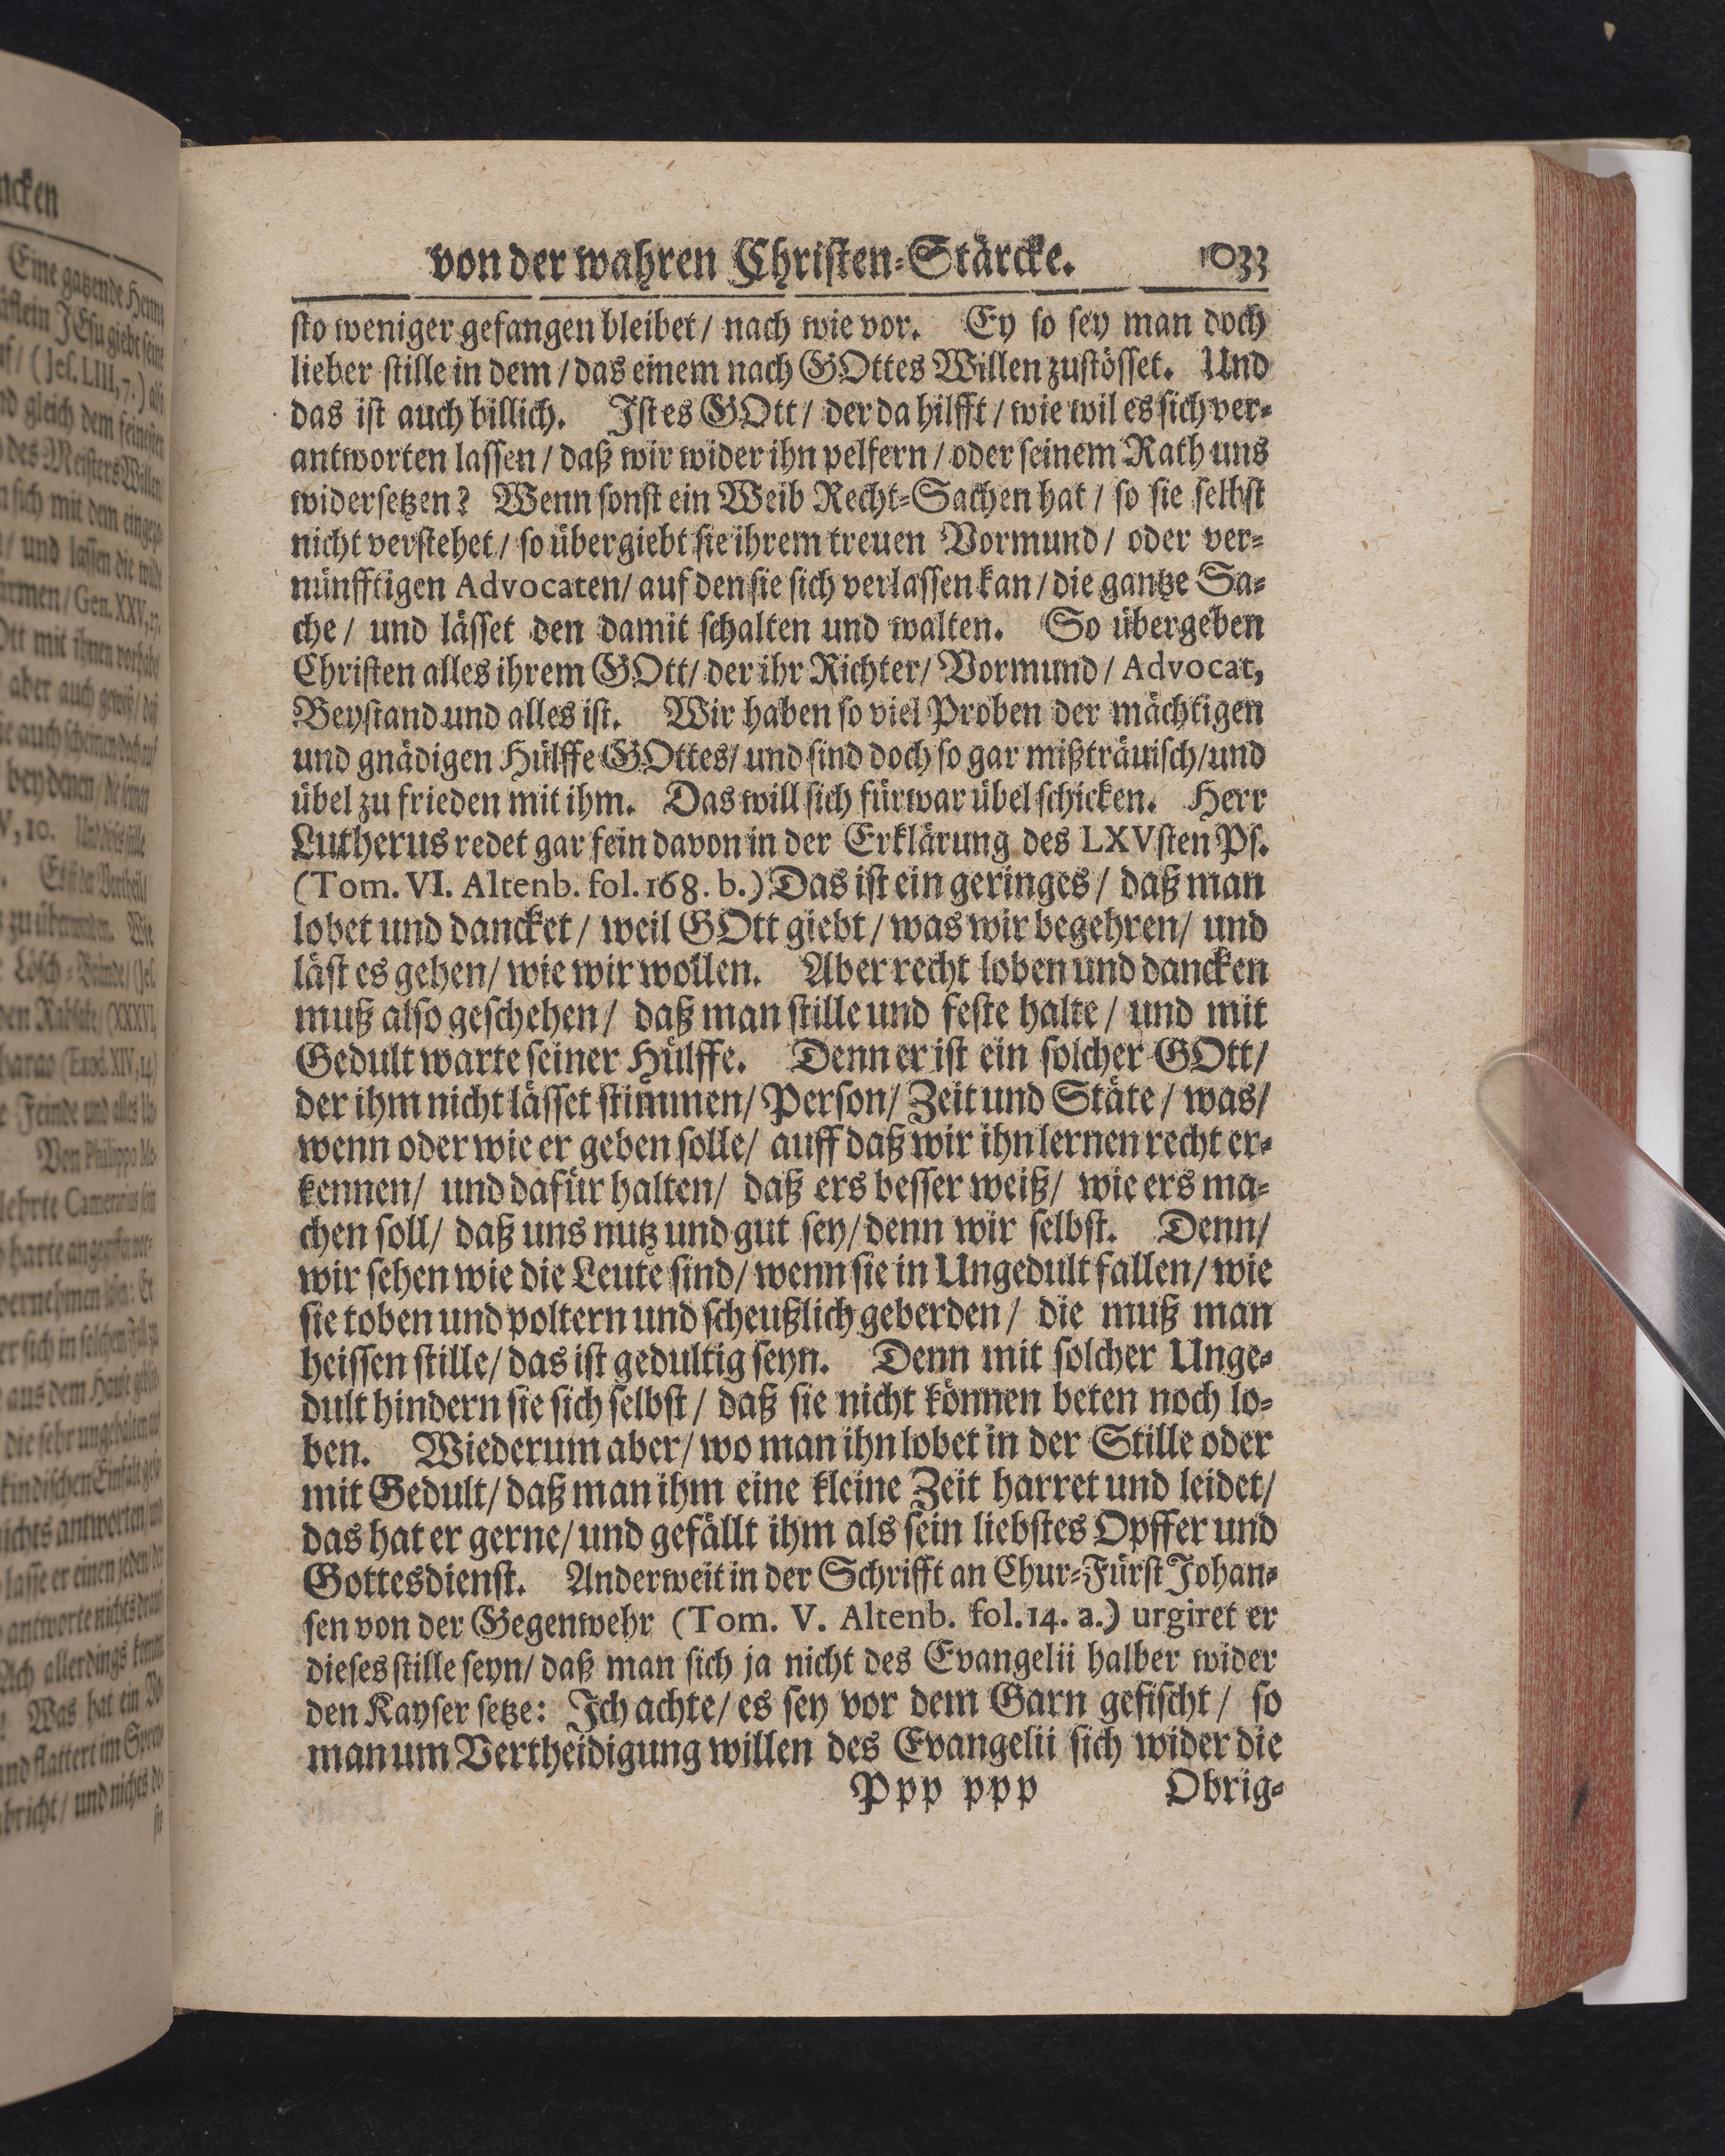 von der wahren Christen-Stärcke. 1033
sto weniger gefangen bleibet / nach wie vor. Ey so sey man doch
lieber stille in dem / das einem nach GOttes Willen zustösset. Und
das ist auch billich. Ist es GOtt / der da hilfft / wie wil es sich ver-
antworten lassen / daß wir wider ihn pelfern / oder seinem Rath uns
widersetzen? Wenn sonst ein Weib Recht-Sachen hat / so sie selbst
nicht verstehet / so übergiebt sie ihrem treuen Vormund / oder ver-
nünfftigen Advocaten / auf den sie sich verlassen kan / die gantze Sa-
che / und lässet den damit schalten und walten. So übergeben
Christen alles ihrem GOtt / der ihr Richter / Vormund / Advocat,
Beystand und alles ist. Wir haben so viel Proben der mächtigen
und gnädigen Hülffe GOttes / und sind doch so gar mißträuisch / und
übel zu frieden mit ihm. Das will sich fürwar übel schicken. Herr
Lutherus redet gar fein davon in der Erklärung des LXVsten Ps.
(Tom. VI. Altenb. fol. 168. b.) Das ist ein geringes / daß man
lobet und dancket / weil GOtt giebt / was wir begehren / und
läst es gehen / wie wir wollen. Aber recht loben und dancken
muß also geschehen / daß man stille und feste halte / und mit
Gedult warte seiner Hülffe. Denn er ist ein solcher GOtt /
der ihm nicht lässet stimmen / Person / Zeit und Stäte / was /
wenn oder wie er geben solle / auff daß wir ihn lernen recht er-
kennen / und dafür halten / daß ers besser weiß / wie ers ma-
chen soll / daß uns nutz und gut sey / denn wir selbst. Denn /
wir sehen wie die Leute sind / wenn sie in Ungedult fallen / wie
sie toben und poltern und scheußlich geberden / die muß man
heissen stille / das ist gedultig seyn. Denn mit solcher Unge-
dult hindern sie sich selbst / daß sie nicht können beten noch lo-
ben. Wiederum aber / wo man ihn lobet in der Stille oder
mit Gedult / daß man ihm eine kleine Zeit harret und leidet /
das hat er gerne / und gefällt ihm als sein liebstes Opffer und
Gottesdienst. Anderweit in der Schrifft an Chur-Fürst Johan-
sen von der Gegenwehr (Tom. V. Altenb. fol. 14. a.) urgiret er
dieses stille seyn / daß man sich ja nicht des Evangelii halber wider
den Kayser setze: Ich achte / es sey vor dem Garn gefischt / so
man um Vertheidigung willen des Evangelii sich wider die
Ppp ppp Obrig-